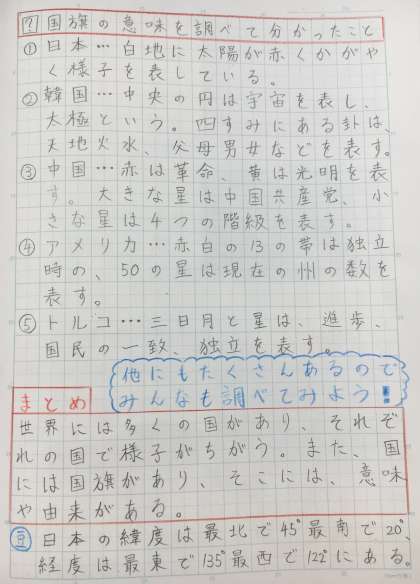 ? 国旗の意味を調べて分かったこと
① 日本…白地に太陽が赤くかがや
く様子を表している。
② 韓国…中央の円は宇宙を表し、
太極という。四すみにある卦は、
天地火水、父母男女などを表す。
③ 中国…赤は革命、黄は光明を表
す。大きな星は中国共産党、小
さな星は4つの階級を表す。
④ アメリカ…赤白の13の帯は独立
時の、50の星は現在の州の数を
表す。
⑤ トルコ…三日月と星は、進歩、
国民の一致、独立を表す。
他にもたくさんあるので
みんなも調べてみよう!
まとめ
世界には多くの国があり、それぞ
れの国で様子がちがう。また、国
には国旗があり、そこには、意味
や由来がある。
豆 日本の緯度は最北で45°最南で20°、
経度は最東で135°最西で122°にある。